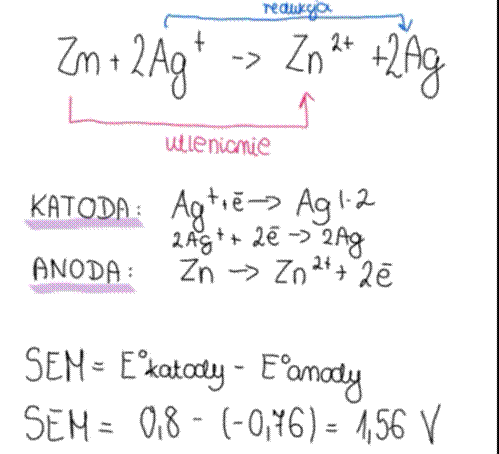 redukcja
Zn + 2Ag⁺ -> Zn²⁺ + 2Ag
utlenianie
KATODA: Ag⁺ + ē -> Ag |·2
2Ag⁺ + 2ē -> 2Ag
ANODA: Zn -> Zn²⁺ + 2ē
SEM = E°katody - E°anody
SEM = 0,8 - (-0,76) = 1,56 V